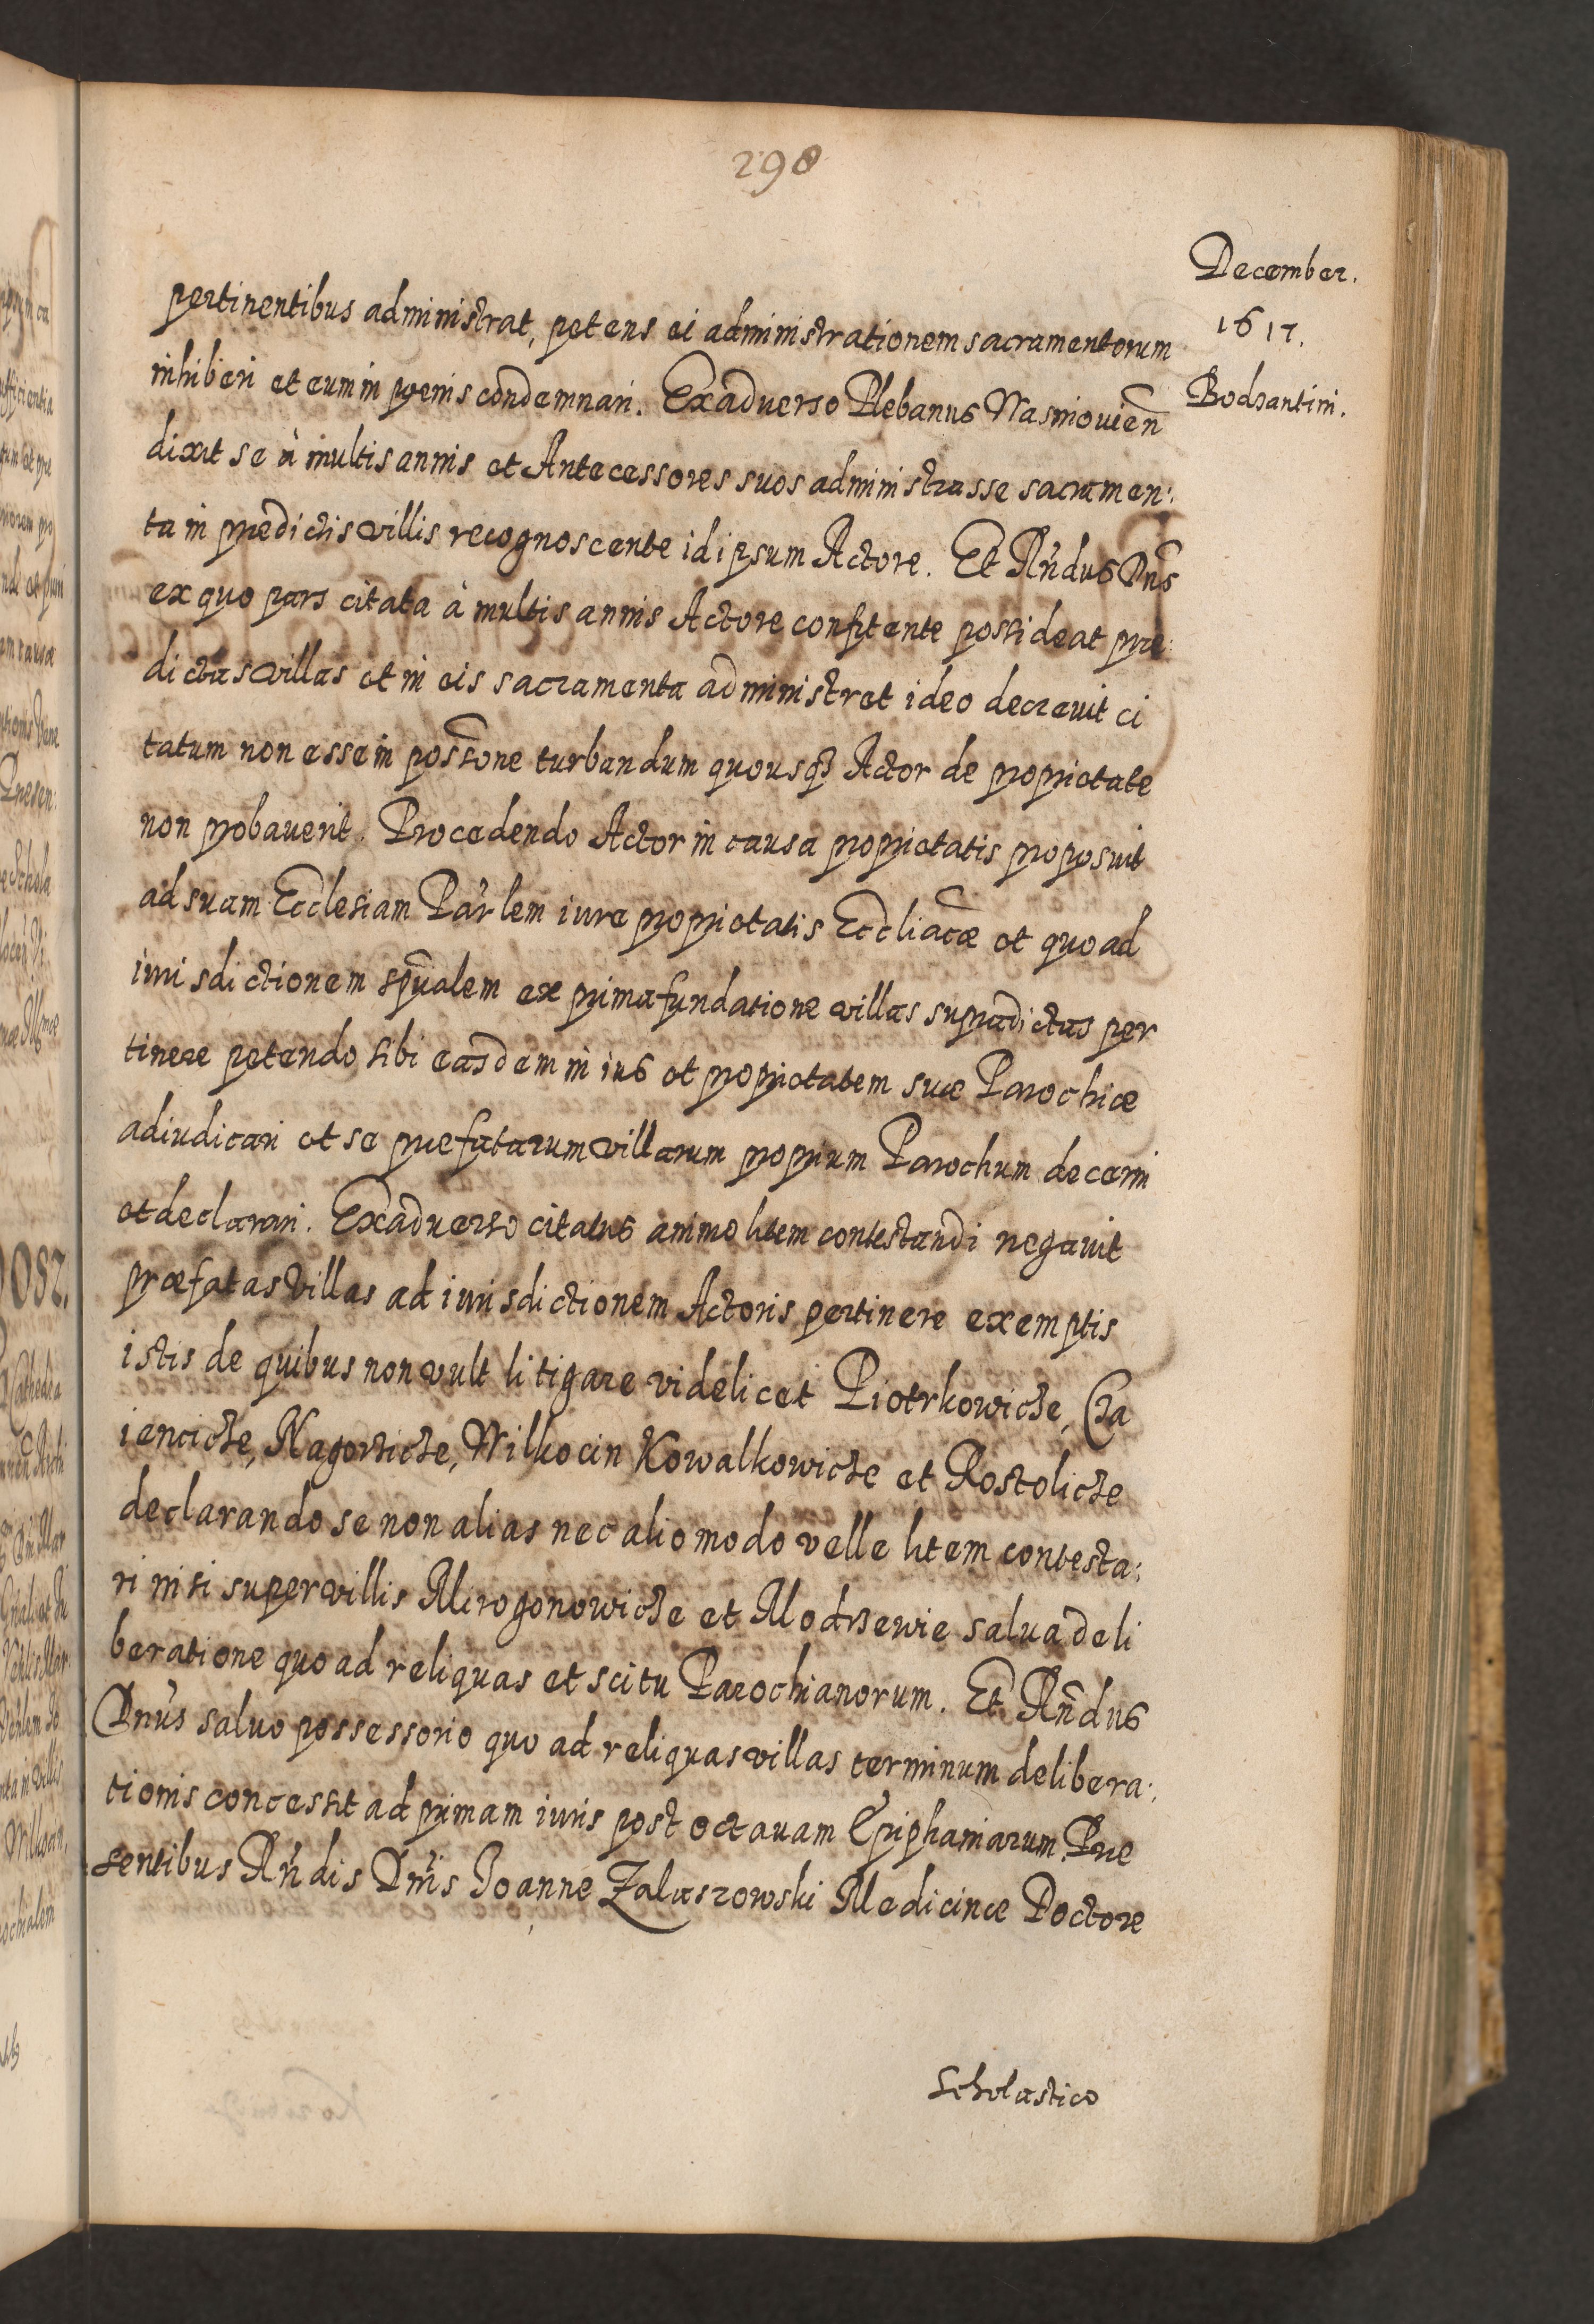 298
December.
1617.
Bodzantini.
pertinentibus administrat, petens ei administrationem sacramentorum
inhiberi et eum in poenis condemnari. Ex adverso Plebanus Wasniovien
dixit se à multis annis et Antecessores suos administrasse sacramen:
ta in praedictis villis recognoscente id ipsum Actore. Et Rndus Dns
ex quo pars citata à multis annis Actore confitente possideat prae:
dictas villas et in eis sacramenta administret ideo decrevit ci
tatum non esse in possone turbandum quousq3 Actor de proprietate
non probaverit. Procedendo Actor in causa proprietatis proposuit
ad suam Ecclesiam Parlem iure proprietatis Eccliacae et quo ad
iurisdictionem spualem ex prima fundatione villas supradictas per
tinere petendo sibi easdem in ius et proprietatem suae Parochiae
adiudicari et se praefatarum villarum proprium Parochum decerni
et declarari. Ex adverso citatus animo litem contestandi negavit
praefatas villas ad iurisdictionem Actoris pertinere exemptis
istis de quibus non vult litigare videlicet Piotrkowicze, Cza
ienczicze, Nagorzicze, Wilkocin Kowalkowicze et Rostolicze
declarando se non alias nec alio modo velle litem contesta:
ri nisi super villis Mirogonowicze et Modrzewie salva deli
beratione quo ad reliquas et scitu Parochianorum. Et Rndus
Dnus salvo possessorio quo ad reliquas villas terminum delibera:
tionis concessit ad primam iuris post octavam Epiphaniarum. Prae
sentibus Rndis Dnis Joanne Zalaszowski Medicinae Doctore
Scholastico